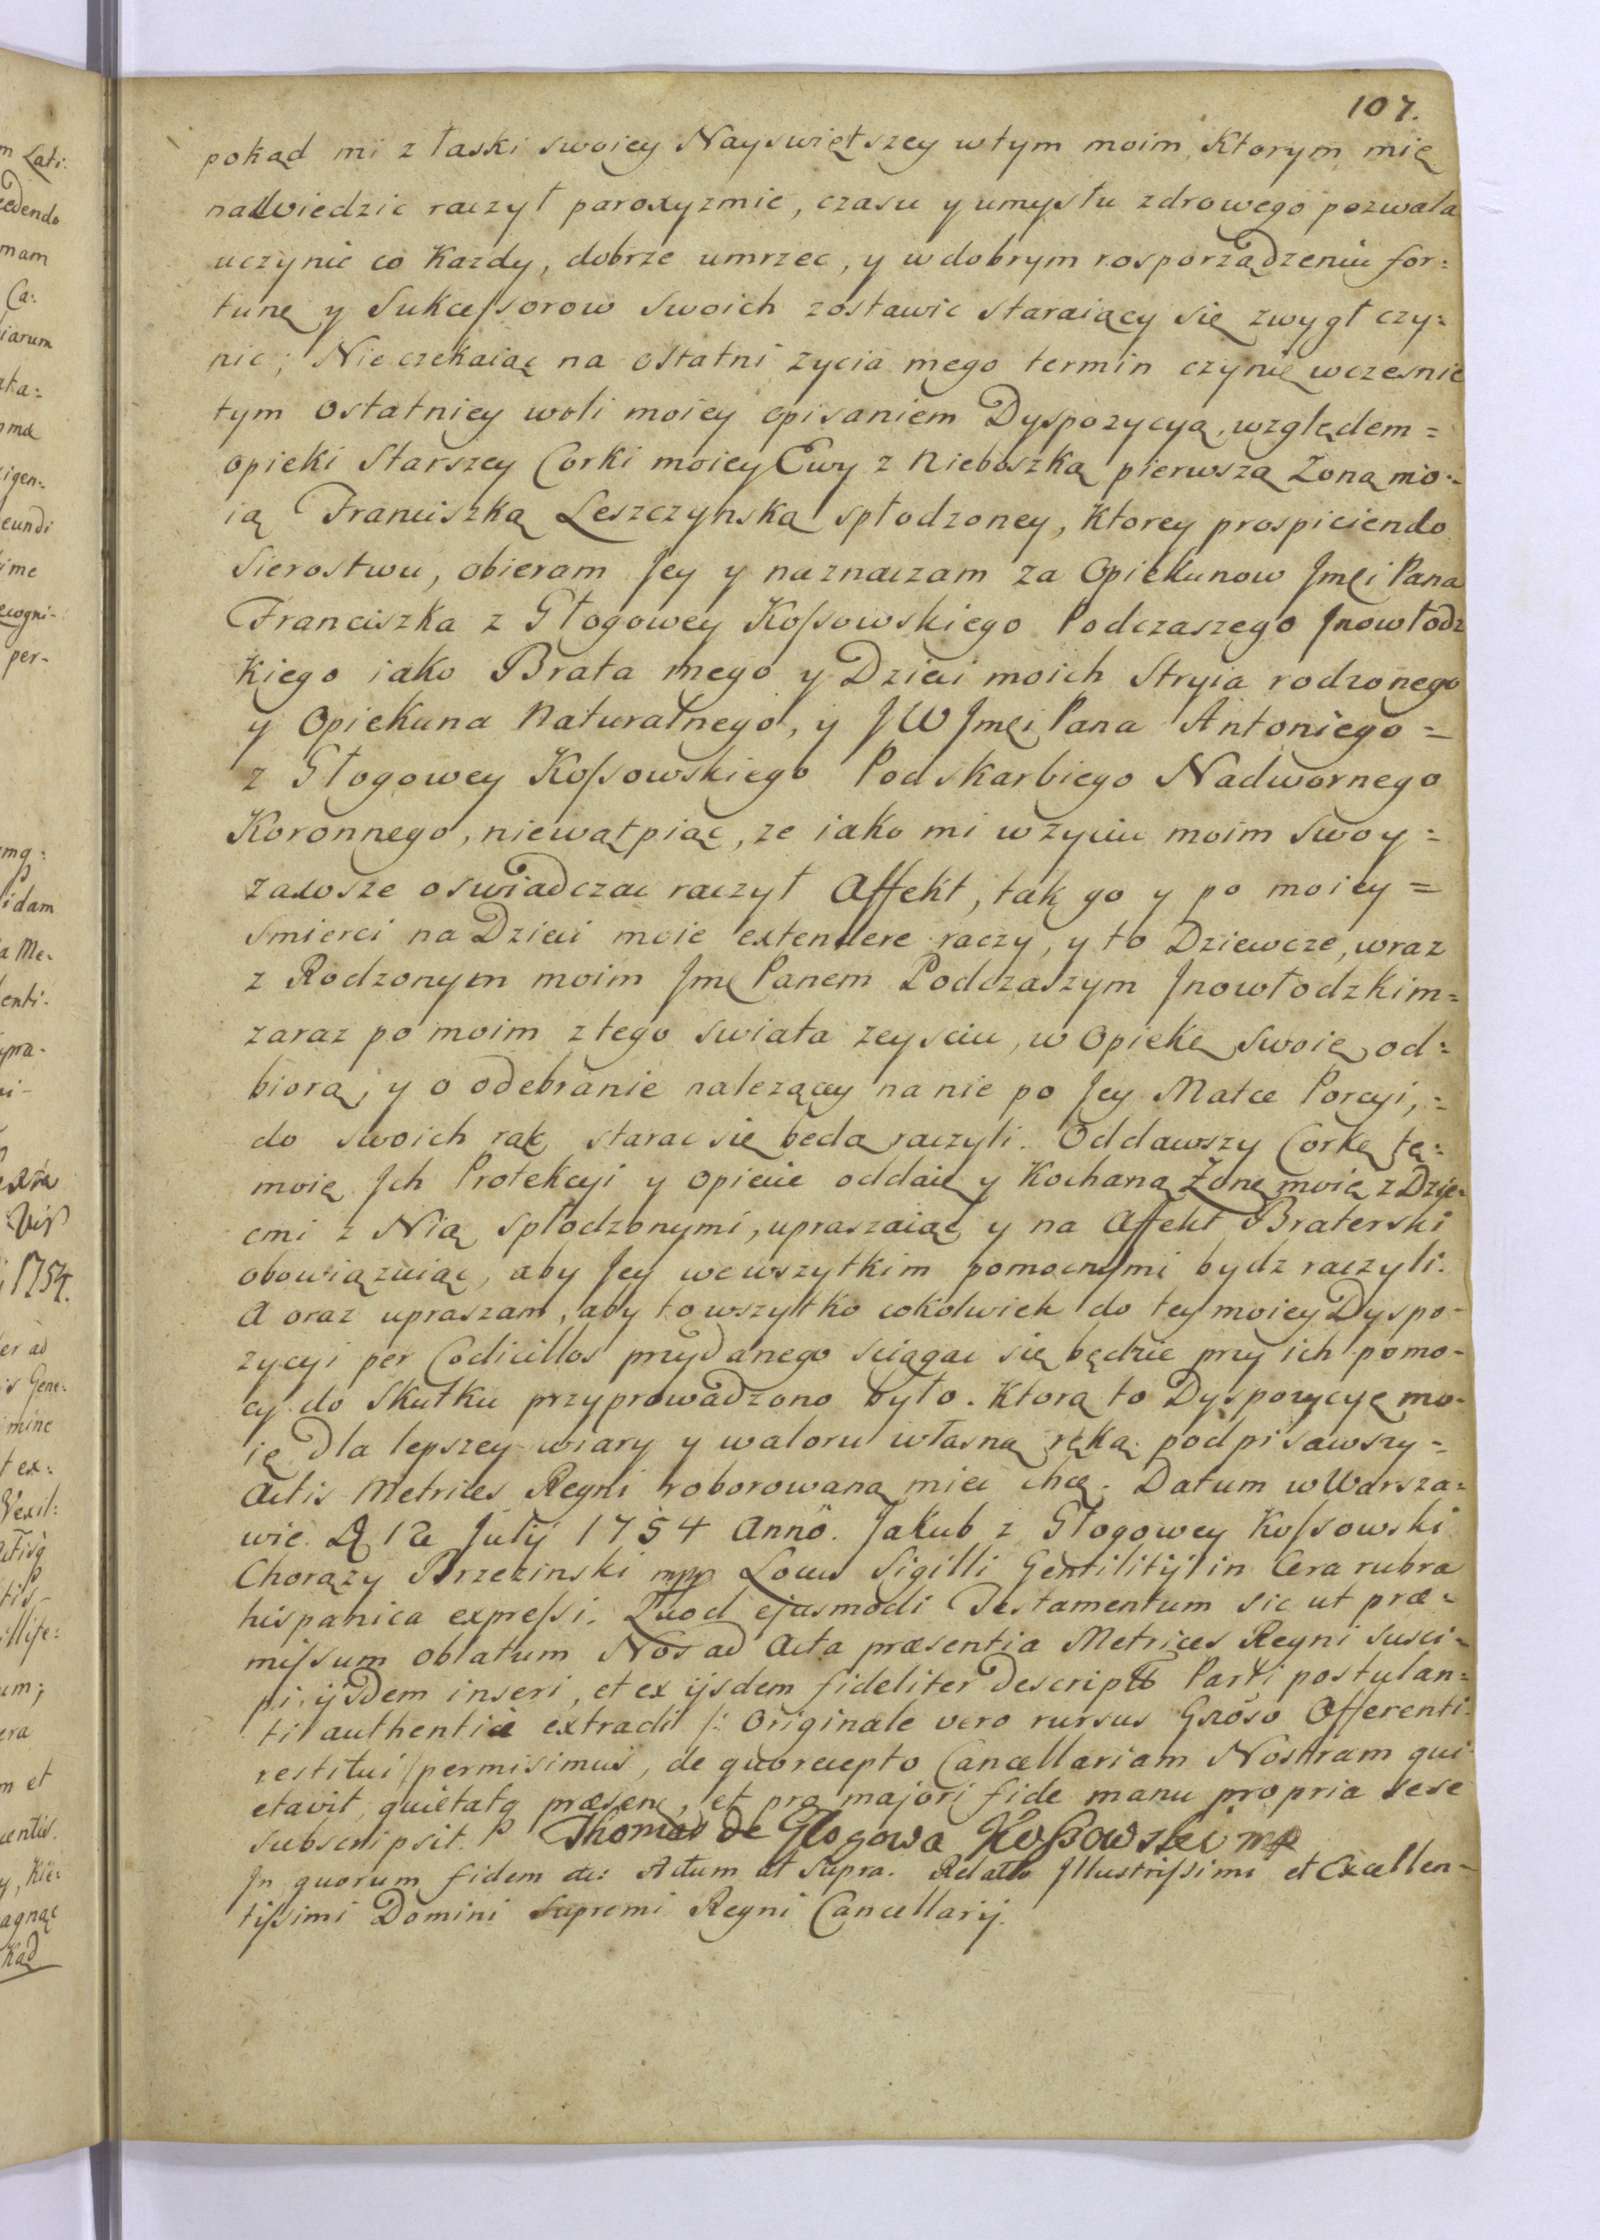 107.
pokąd mi z łaski swoiey Nayswiętszey w tym moim Ktorym mię
nadwiedzic raczył paroxyzmie, czasu y umysłu zdrowego pozwala
uczynic co Kazdy, dobrze umrzec, y w dobrym rosporządzeniu for:
tunę y Sukcessorow Swoich zostawic staraiący się zwygł czy:
nic; Nie czekaiąc na ostatni zycia mego termin czynię wczesnie
tym Ostatniey woli moiey opisaniem Dyspozycyą względem =
opieki Starszey Corki moiey Ewy z Nieboszką pierwszą Zoną mo:
ią Franciszką Leszczynską spłodzoney, Ktorey prospiciendo
Sierostwu, obieram Jey y naznaczam za Opiekunow Jmci Pana
Franciszka z Głogowey Kossowskiego Podczaszego Jnowłodz
Kiego iako Brata mego y Dzieci moich Stryia rodzonego
y Opiekuna Naturalnego, y JW Jmci Pana Antoniego =
z Głogowey Kossowskiego Podskarbiego Nadwornego
Koronnego, niewątpiąc, ze iako mi w zyciu moim swoy =
zawsze oswiadczac raczył Affekt, tak go y po moiey =
Smierci na Dzieci moie extendere raczy, y to Dziewcze, wraz
z Rodzonym moim Jmc Panem Podczaszym Jnowłodzkim =
zaraz po moim z tego swiata zeysciu, w Opiekę swoię od:
biorą, y o odebranie nalezącey na nie po Jey Matce Porcyi, =
do swoich rąk starac się będą raczyli. Oddawszy Corkę tę =
moię Jch Protekcyi y Opiece oddaię y Kochaną Żonę moię z Dzie:
cmi z Nią spłodzonymi, upraszaiąc y na Affekt Braterski
obowiązuiąc, aby Jey we wszytkim pomocnymi bydz raczyli.
A oraz upraszam, aby to wszytko cokolwiek do tey moiey Dyspo-
zycyi per Codicillos przydanego sciągac się będzie przy ich pomo-
cy do Skutku przyprowadzono było. Ktorą to Dyspozycyę mo-
ię Dla lepszey wiary y waloru własną ręką podpisawszy =
Actis Metrices Regni roborowaną miec chcę. Datum w Warsza:
wie D 12 Julij 1754 Anno. Jakub z Głogowey Kossowski
Chorązy Brzezinski mpp Locus Sigilli Gentilitij in Cera rubra
hispanica expressi. Quod ejusmodi Testamentum sic ut præ-
missum oblatum Nos ad Acta præsentia Metrices Regni susci-
pi, ijsdem inseri, et ex ijsdem fideliter Descriptu Parti postulan:
ti authentice extradi /: Originale vero rursus Gnoso Offerenti
restitui / permisimus, de quo recepto Cancellariam Nostram qui
etavit, quietatq præsent, et pro majori fide manu propria sese
subscripsit. Thomas de Glogowa Kossowski mp
Jn quorum fidem etc: Actum ut supra. Relatio Jllustrissimi et Excellen-
tissimi Domini Supremi Regni Cancellarij.